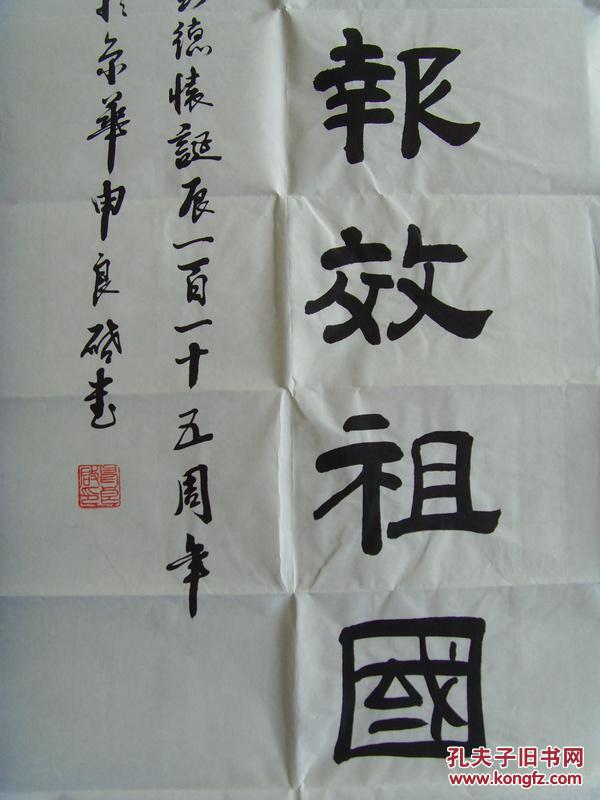 報效祖國
德懷誕辰一百一十五周年
於京華申良啟書
孔夫子旧书网
www.kongfz.com